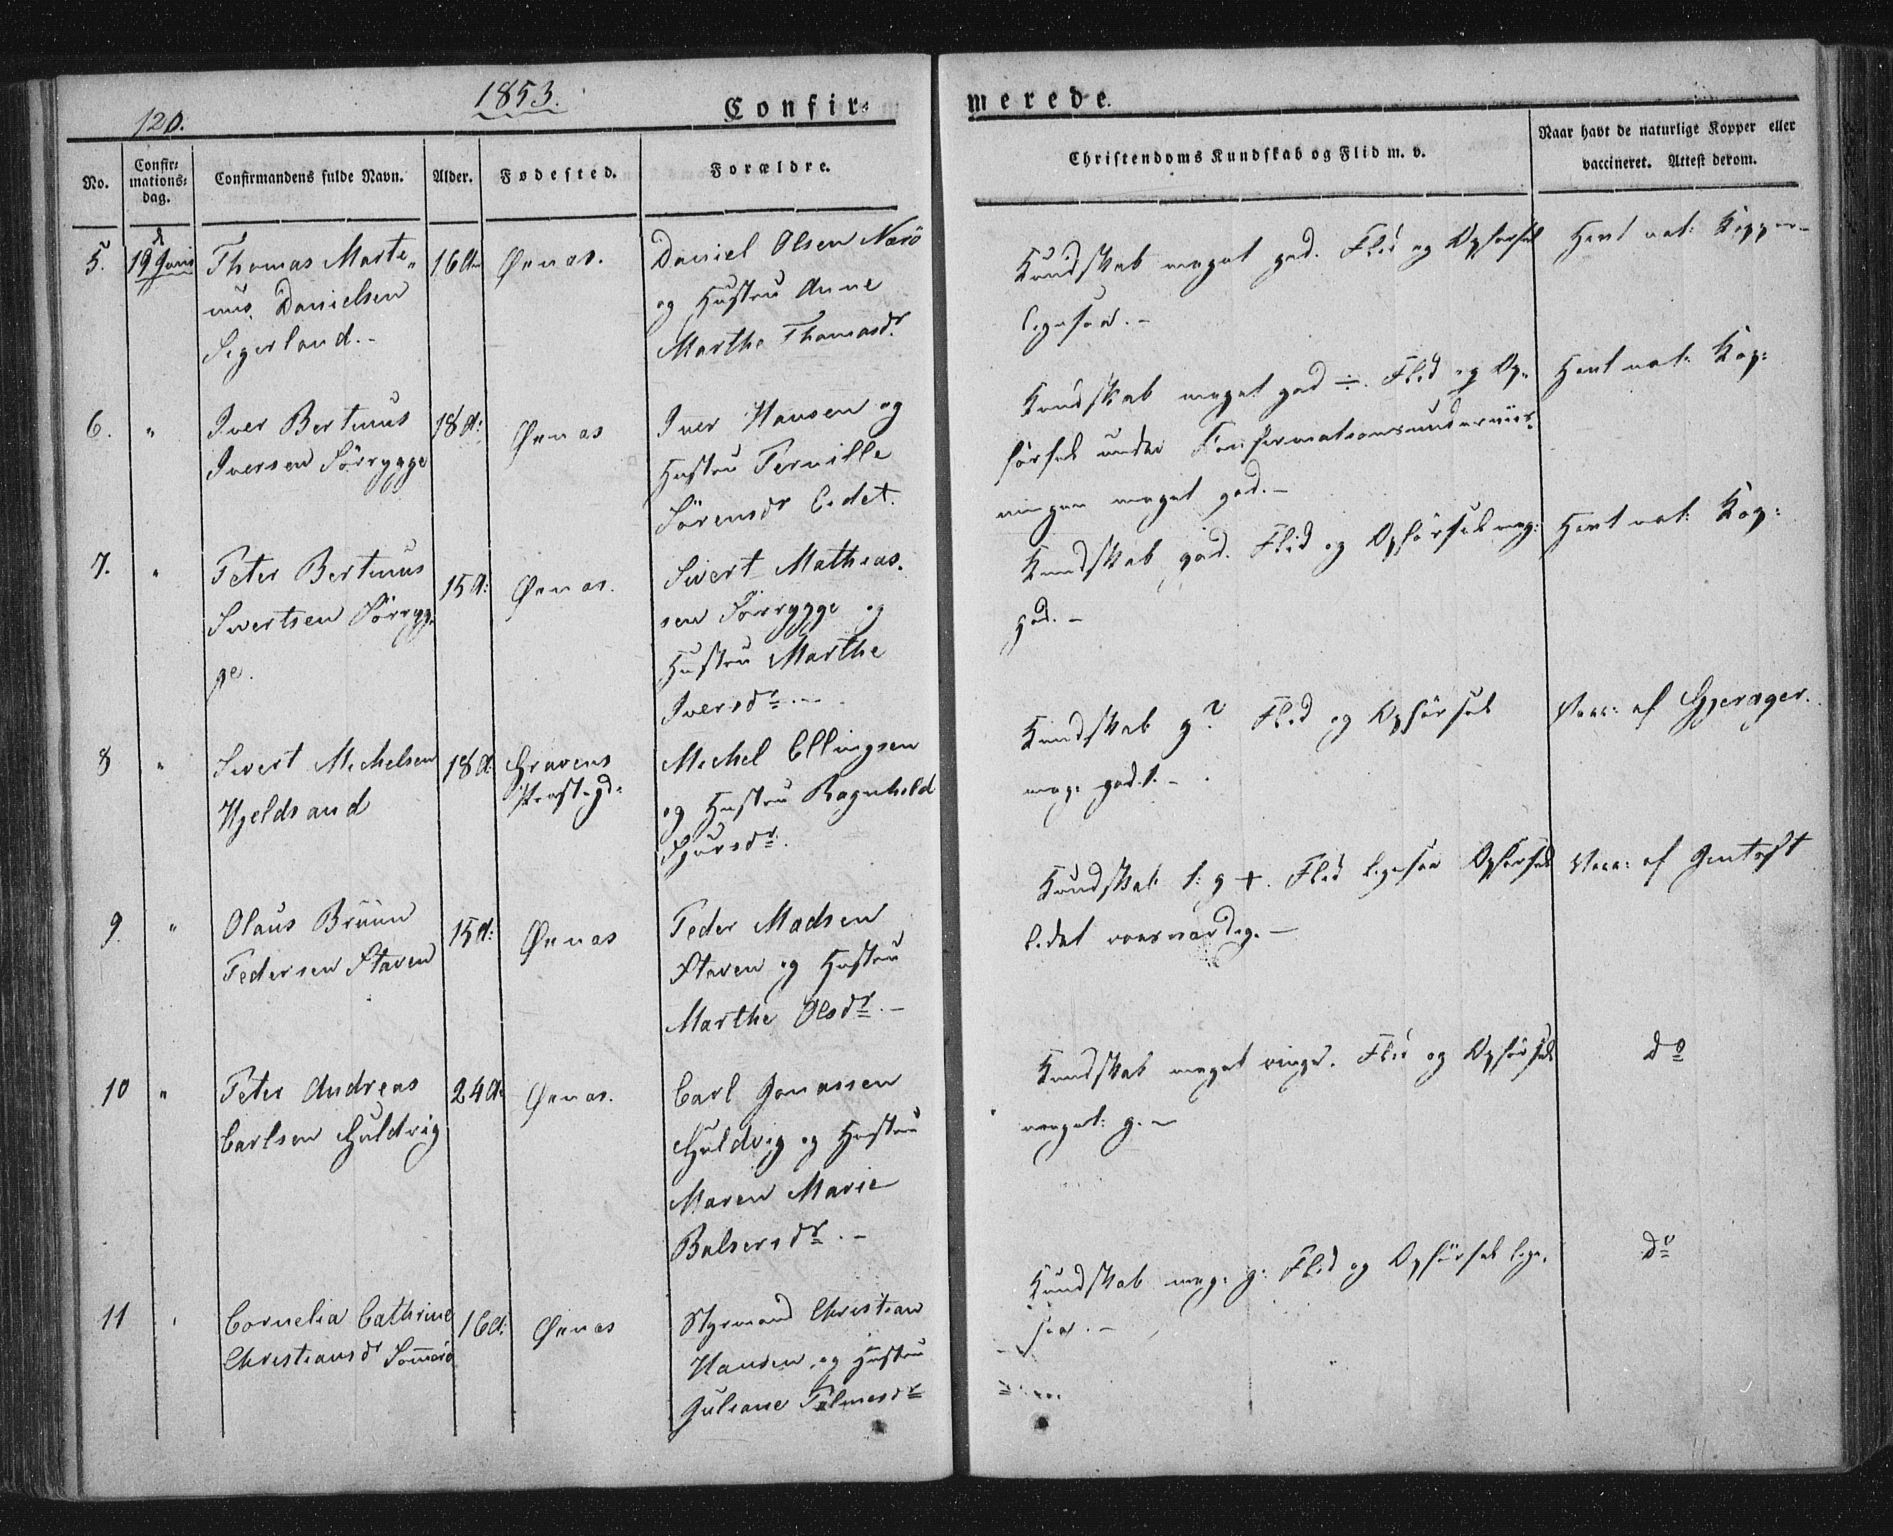 120.
1853.
Confir:
merede.
No.
Confir:
mations:
dag.
Confirmandens fulde Navn.
Alder.
Fødested.
Forældre.
Christendoms Kundskab og Flid m. v.
Naar havt de naturlige Kopper eller
vaccineret. Attest derom.
5.
d
19 Juni
Thomas Marte„
nus Danielsen
Segerland.-
16 A
Øsnas.
Daniel Olsen Nærö
og Hustru Anne
Marthe Thomasdr
Kundskab meget god. Flid og Opförsel
ligesaa.-
Havt nat: Kopper-
6.
"
Iver Bertinus
Iversen Sörrygge
18 A:
Øsnas
Iver Hansen og
Hustru Pernille
Sörensdr Eidet.
Kundskab meget god ÷. Flid og Op„
försel under Confirmationsunderviis„
ningen meget god.-
Havt nat: Kop:
7.
"
Peter Bertinus
Sivertsen Sörryg„
ge.
15 A:
Øsnas.
Sivert Mathias„
sen Sörrygge og
Hustru Marthe
Iversdr.-
Kundskab god. Flid og Opförsel meg:
god.-
Havt nat: Kop:
8
"
Sivert Michelsen
Hjeldsand
18 A:
Gravens
Præstegd:
Michel Ellingsen
og Hustru Ragnhild
Sjursdr.
Kundskab g? Flid og Opförsel
meg: god.-
Vacc: af Gjerager.
9.
"
Olaus Bruun
Pedersen Staven
15 A:
Øsnas
Peder Madsen
Staven og Hustru
Marthe Olsdr.-
Kundskab t: g +. Flid ligesaa Opförsel
lidet roesværdig.-
Vacc: af Gentoft
10
"
Peter Andreas
Carlsen Huldvig
24 A:
Øsnas.
Carl Jonassen
Huldvig og Hustru
Maren Marie
Balsersdr.-
Kundskab meget ringe. Flid og Opförsel
meget: g.-
do
11
"
Cornelia Cathrine
Christiansdr Sommerö
16 A:
Øsnas
Styrmand Christian
Hansen og Hustru
Juliane
Kundskab meg: g: Flid og Opförsel lige„
saa.-
do